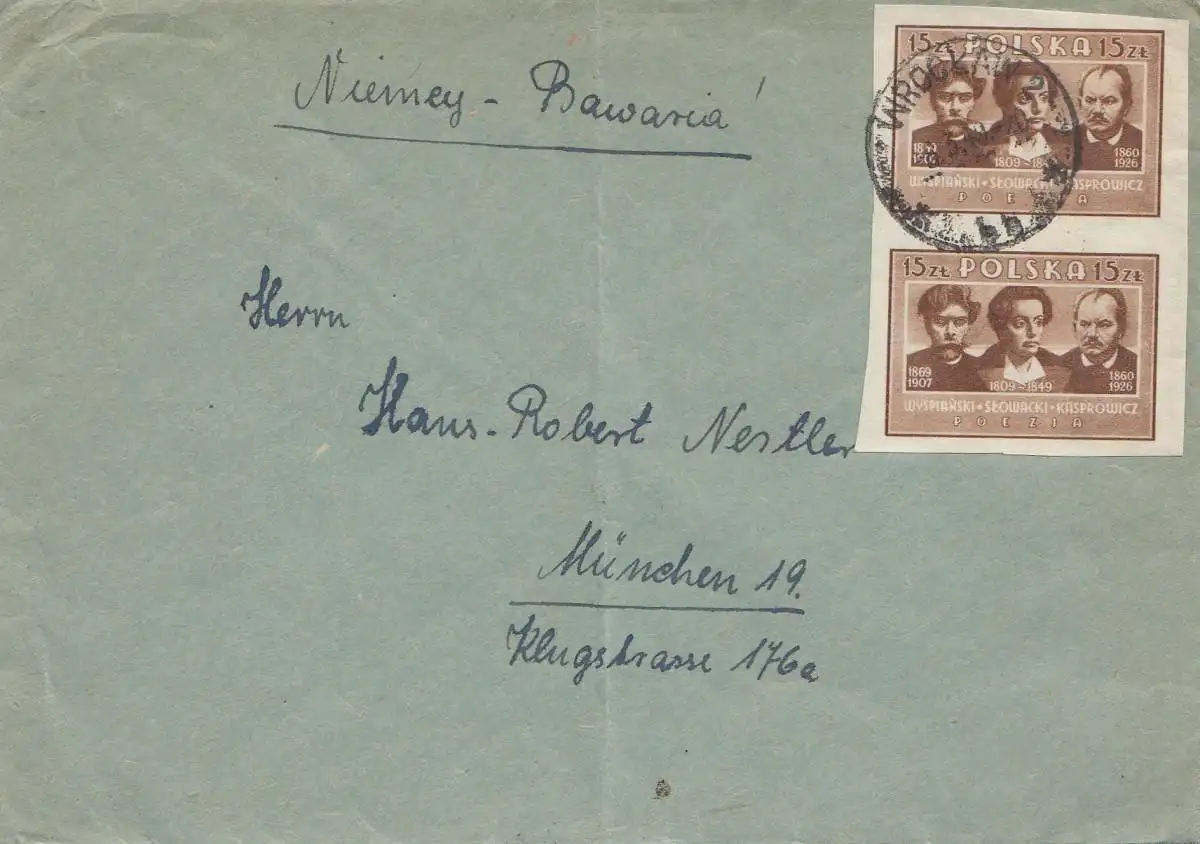 Niemcy - Bawaria
15 ZŁ POLSKA 15 ZŁ
WROCŁAW 2
1869 1907
1809-1849
1860 1926
WYSPIAŃSKI • SŁOWACKI • KASPROWICZ
POEZJA
15 ZŁ POLSKA 15 ZŁ
1869 1907
1809-1849
1860 1926
WYSPIAŃSKI • SŁOWACKI • KASPROWICZ
POEZJA
Herrn
Hans-Robert Nestler
München 19.
Klugstrasse 176a